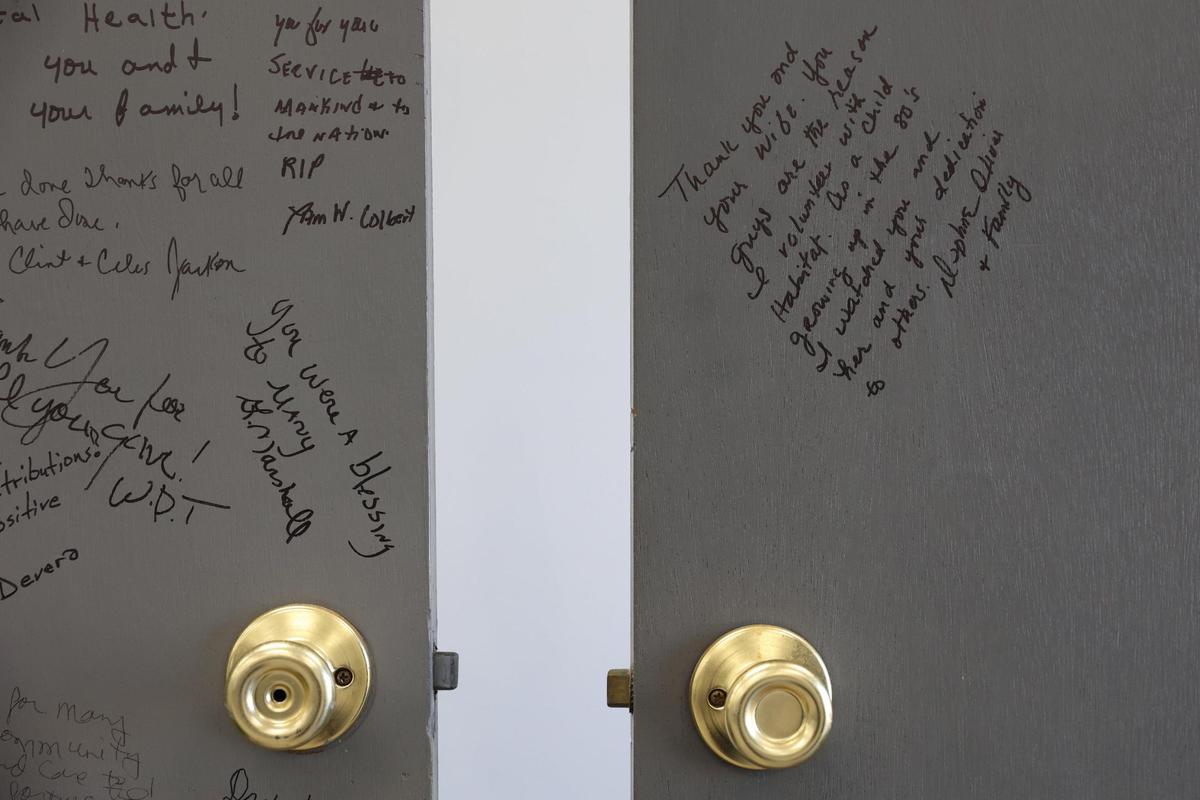 tal Health.
you and
your family!
you for your
SERVICE to
MANKIND & to
the NATION.
RIP
W. Colbert
done Thanks for all
have done.
Clint & Jackson
You for
your care!
W.D.T
tributions.
ositive
Devero
You were A blessing
to Many
Marshall
for many
ommunity
nd Care to
Thank you and
your wife. You
guys are the reason
I volunteer with
Habitat. As a child
growing up in the 80's
I watched you and
her and your dedication
to others.
& Family